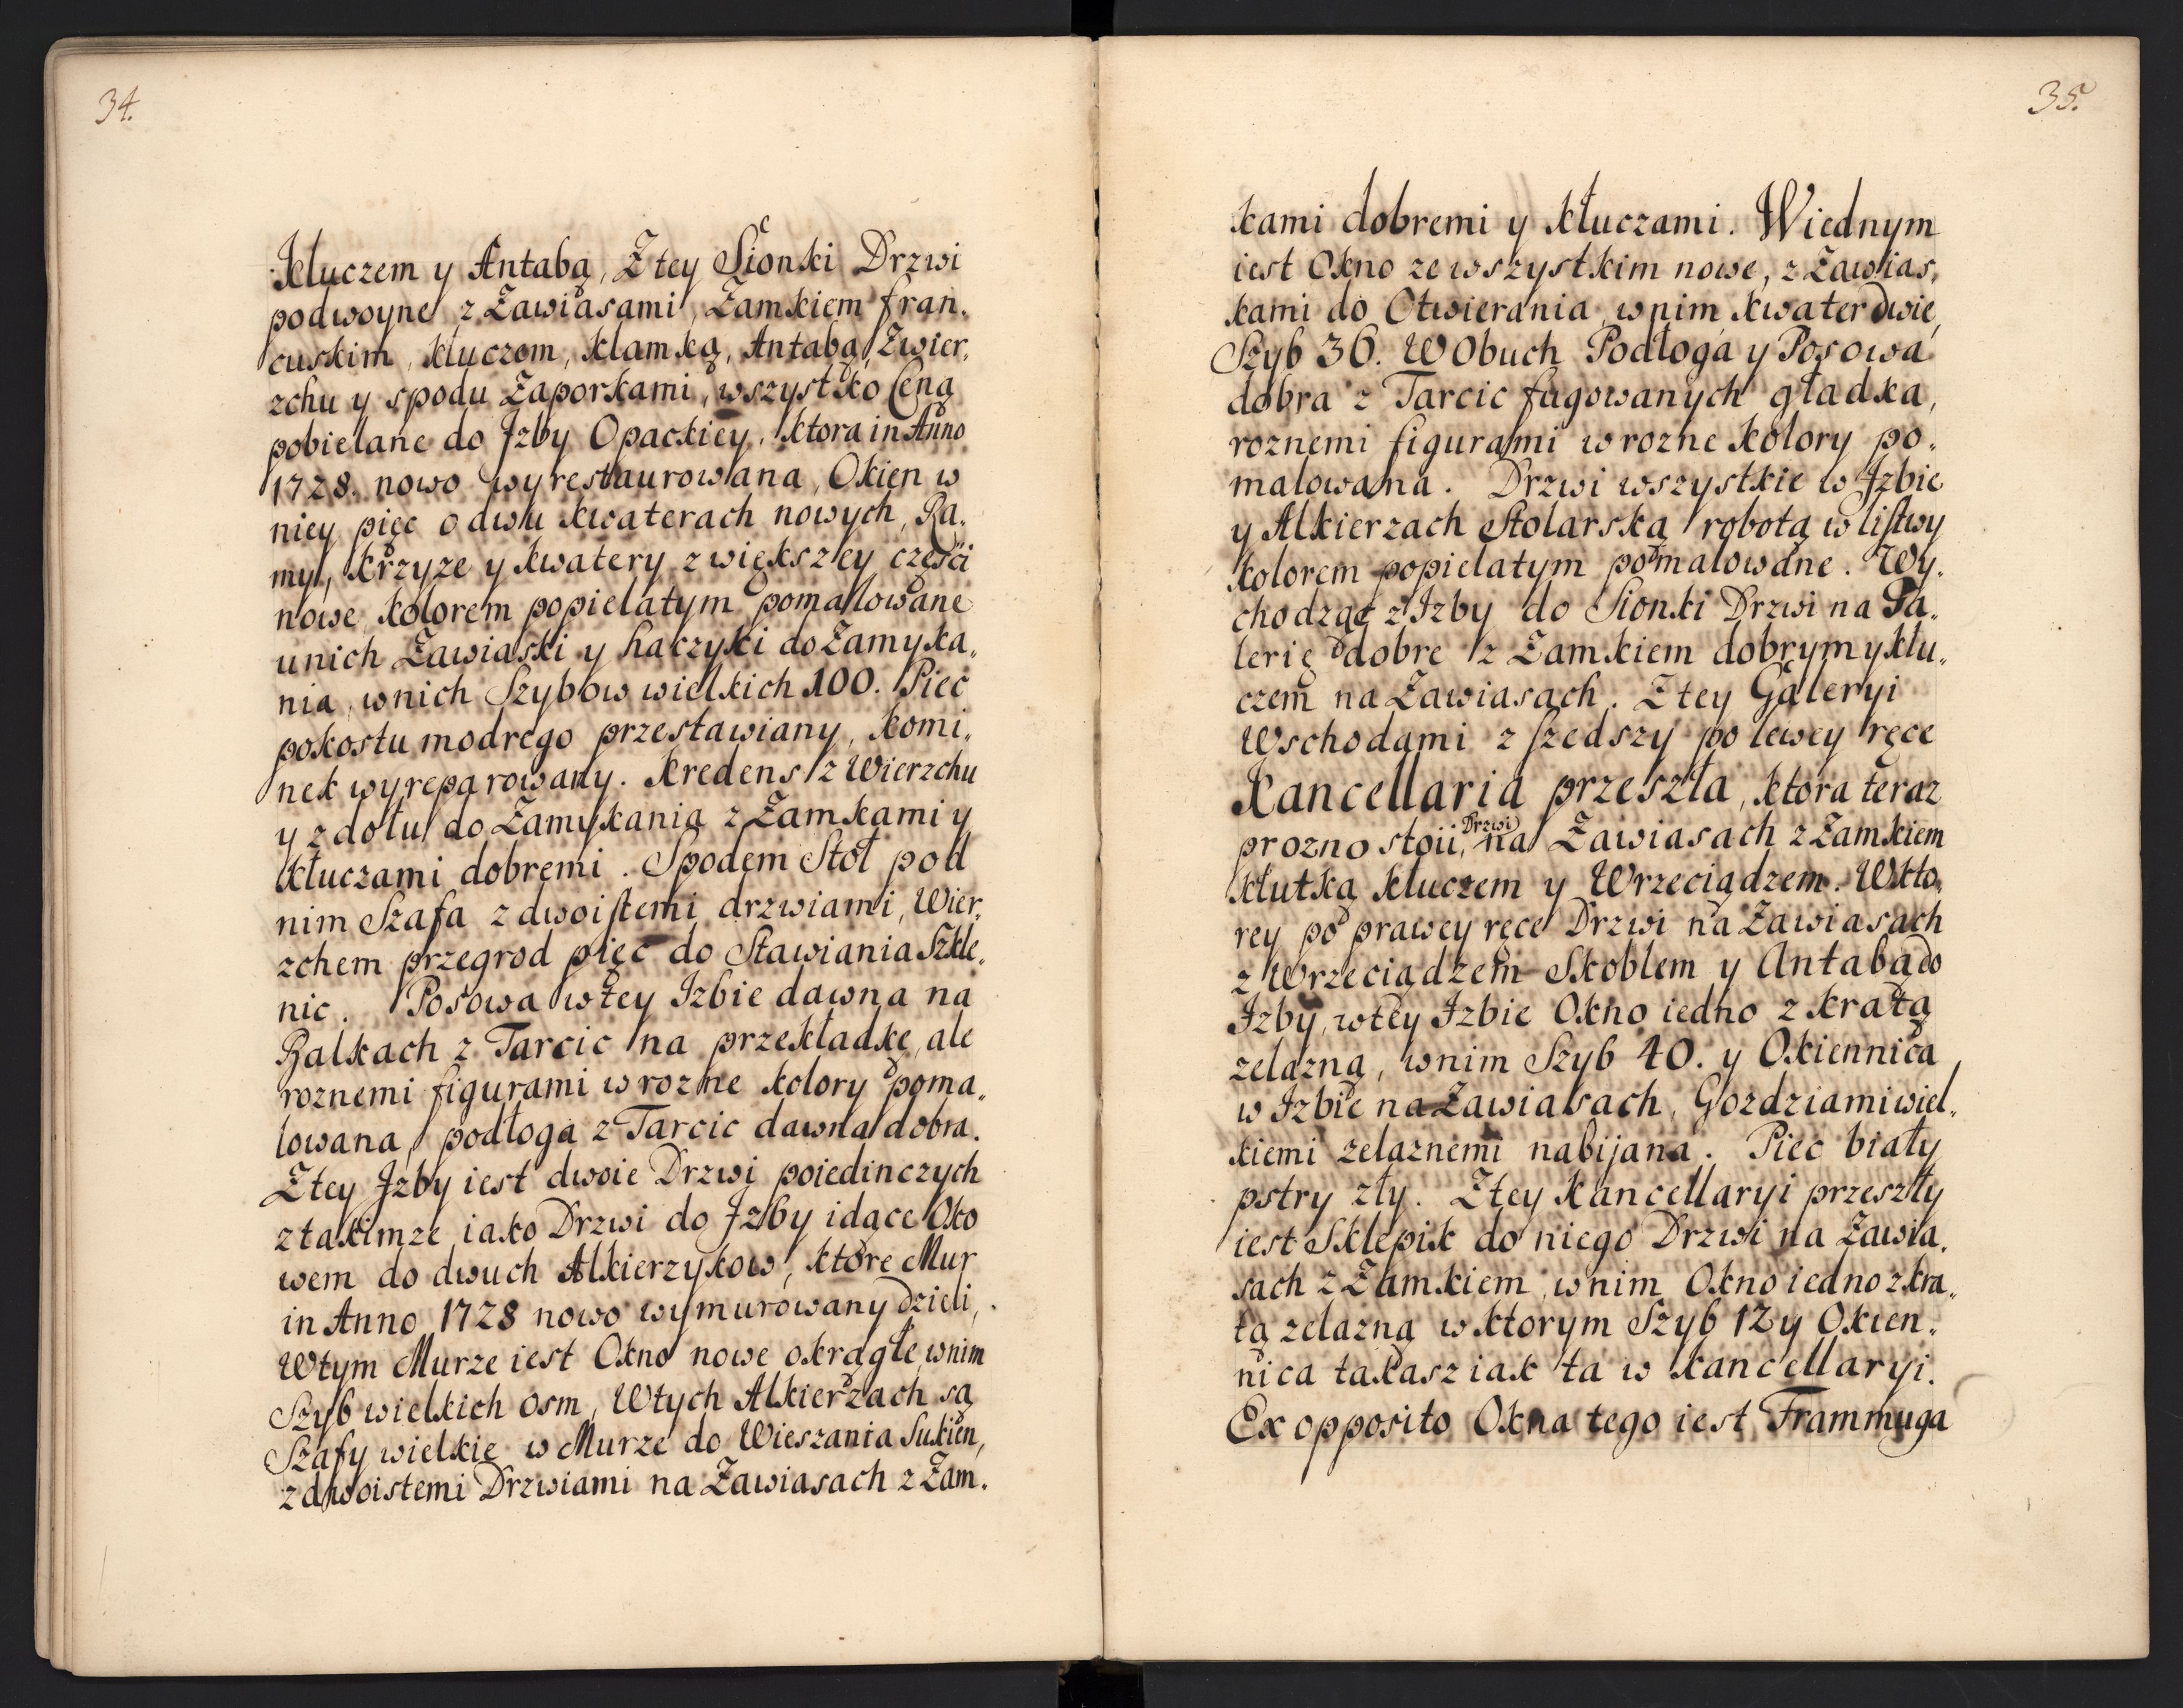 34.
Kluczem y Antabą, Z tey Sionki Drzwi
podwoyne z Zawiasami, Zamkiem fran-
cuskim, kluczem, klamką, Antabą, Zwier-
zchu y spodu Zaporkami, wszystko Ceną
pobielane do Jzby Opackiey, ktora in Anno
1728. nowo wyrestaurowana, Okien w
niey pięc o dwu kwaterach nowych, Ra-
my, krzyze y kwatery z większey częsci
nowe, kolorem popielatym pomalowane
unich Zawiaski y haczyki do Zamyka-
nia, wnich Szybow wielkich 100. Piec
pokostu modrego przestawiany, komi-
nek wyreparowany. Kredens z Wierzchu
y z dołu do Zamykania z Zamkami y
kłuczami dobremi. Spodem Stoł pod
nim Szafa z dwoistemi drzwiami, Wier-
zchem przegrod pięc do Stawiania Szkle-
nic. Posowa wtey Izbie dawna na
Balkach z Tarcic na przekładkę, ale
roznemi figurami w rozne kolory poma-
lowana, podłoga z Tarcic dawna dobra.
Z tey Jzby iest dwoie Drzwi poiedinczych
z takimze iako Drzwi do Jzby idące Oko
wem do dwuch Alkierzykow, ktore Mur
in Anno 1728 nowo wymurowany dzieli,
Wtym Murze iest Okno nowe okrągłe, wnim
Szyb wielkich osm, Wtych Alkierzach są
Szafy wielkie w Murze do Wieszania Sukien,
z dwoistemi Drzwiami na Zawiasach z Zam-
35.
kami dobremi y kłuczami. Wiednym
iest Okno ze wszystkim nowe, z Zawias-
kami do Otwierania, wnim kwater dwie,
Szyb 36. W Obuch Podłoga y Posowa
dobra z Tarcic fugowanych gładka,
roznemi figurami w rozne kolory po-
malowana. Drzwi wszystkie w Jzbie
y Alkierzach Stolarską robotą w listwy
kolorem popielatym pomalowane. Wy-
chodząc z Izby do Sionki Drzwi na Ga-
lerię dobre z Zamkiem dobrym y kłu-
czem na Zawiasach. Z tey Galeryi
Wschodami z szedszy po lewey ręce
Kancellaria przeszła, ktora teraz
prozno stoii, Drzwi na Zawiasach z Zamkiem
kłutką kluczem y Wrzeciądzem. Wkto-
rey po prawey ręce Drzwi na Zawiasach
z Wrzeciądzem Skoblem y Antabą do
Izby, wtey Izbie Okno iedno z kratą
zelazną, wnim Szyb 40. y Okiennica
w Izbie na Zawiasach, Gozdziami wiel-
kiemi zelaznemi nabijana. Piec biały
pstry zły. Z tey Kancellaryi przeszły
iest Sklepik do niego Drzwi na Zawia-
sach z Zamkiem, wnim Okno iedno z kra-
tą zelazną w ktorym Szyb 12 y Okien-
nica takasz iak ta w kancellaryi.
Ex opposito Okna tego iest Frammuga